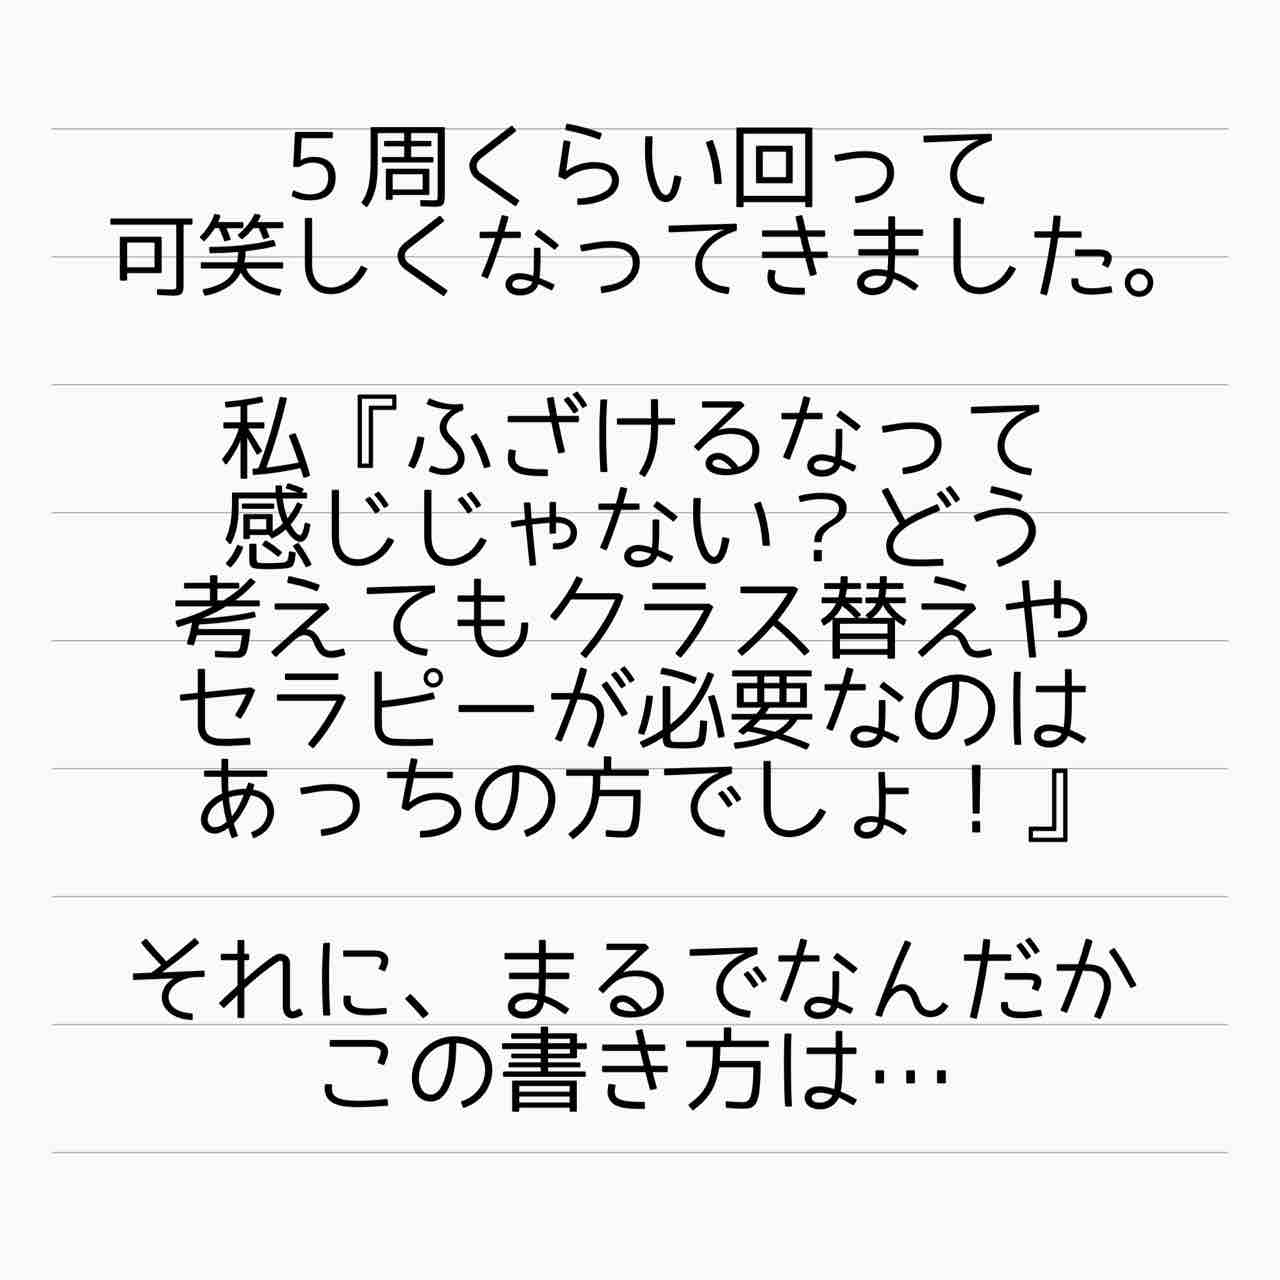 ５周くらい回って
可笑しくなってきました。
私『ふざけるなって
感じじゃない？どう
考えてもクラス替えや
セラピーが必要なのは
あっちの方でしょ！』
それに、まるでなんだか
この書き方は…